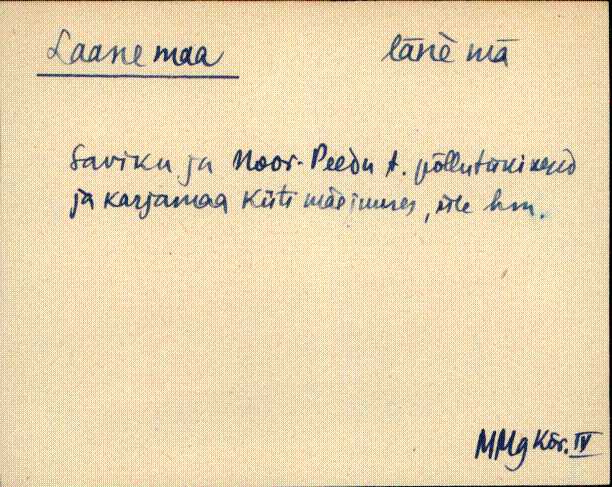 Laanemaa
lāne mā
Saviku ja Noor-Peedu t. põllutükikesed
ja karjamaa Kiiti mäe juures, üle hm.
MMg Kõr. IV